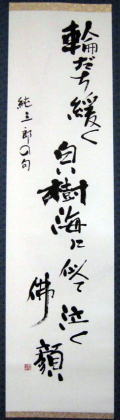 輪だち緩く白い樹海に似て泣く
佛顔
純三郎の句